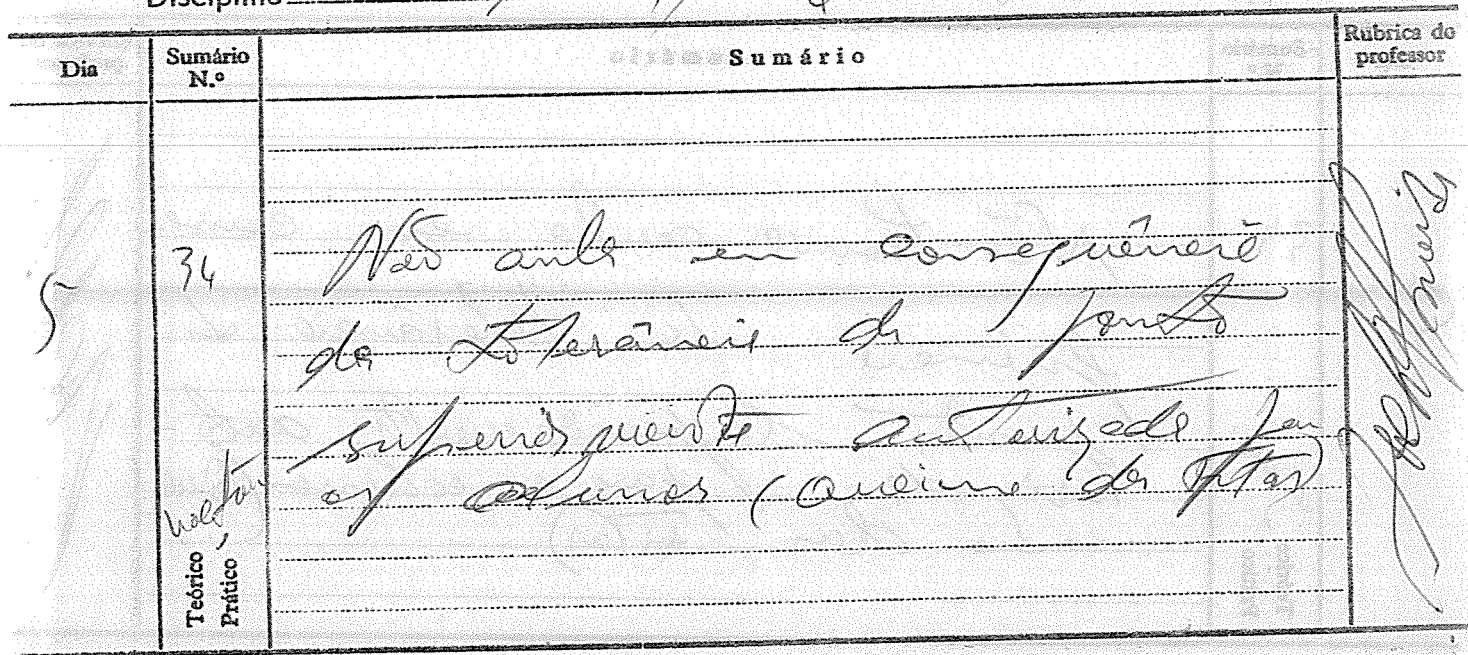 Disciplina
Dia
Sumário N.º
Sumário
Rúbrica do professor
5
34
Não aula em consequência
da tolerância de ponto
superiormente autorizada para
os alunos (Queima das Fitas)
Teórico
Prático